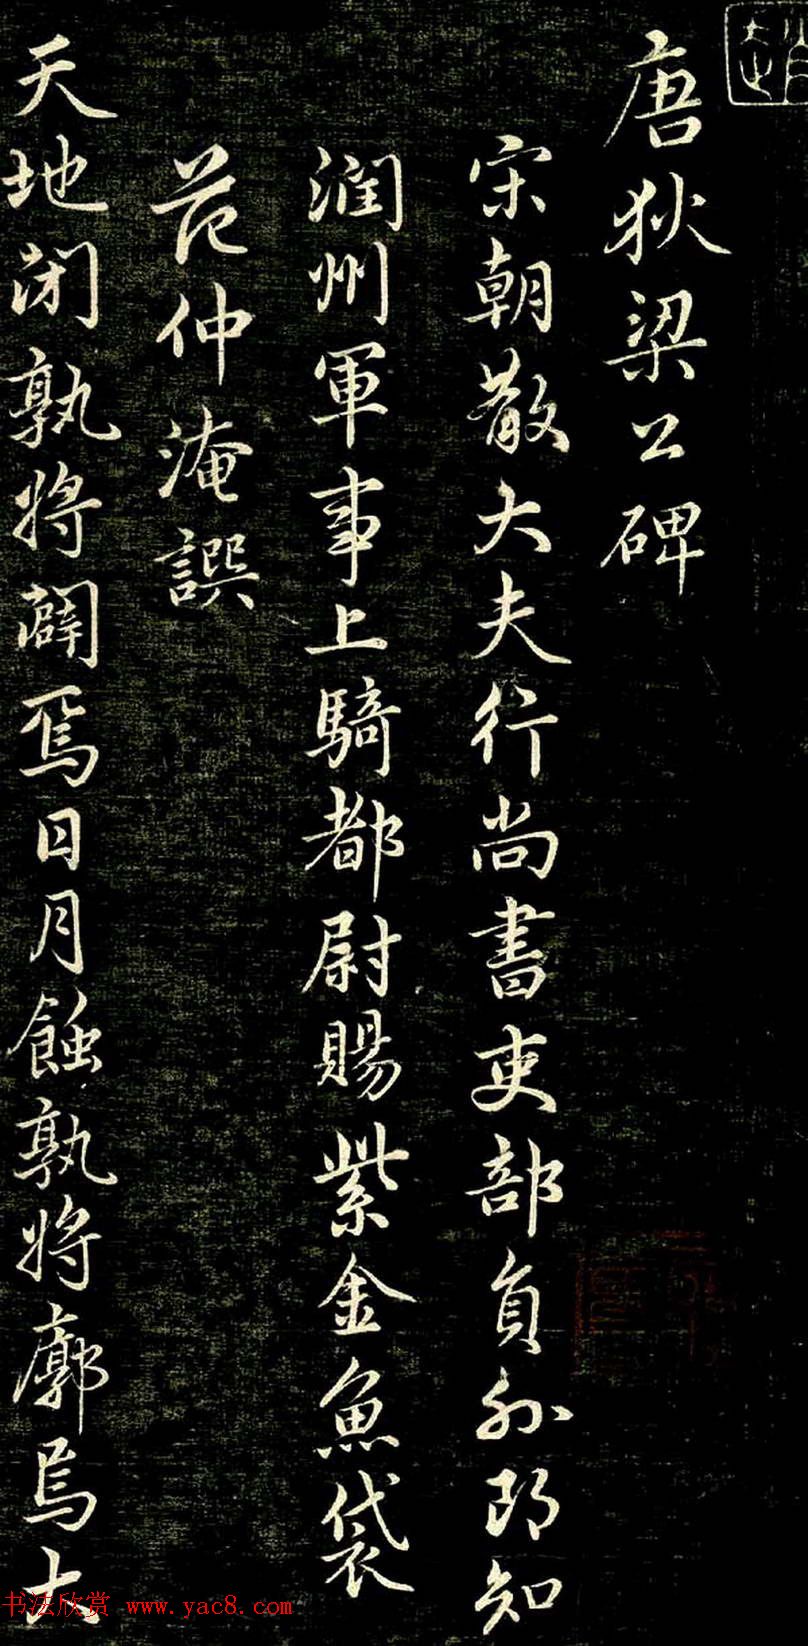 唐狄梁公碑
宋朝散大夫行尚書吏部員外郎知
潤州軍事上騎都尉賜紫金魚袋
范仲淹譔
天地閉孰將闢焉日月蝕孰將廓焉大
书法欣赏 www.yac8.com